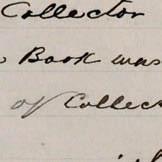 Collector
Book was
of Collec